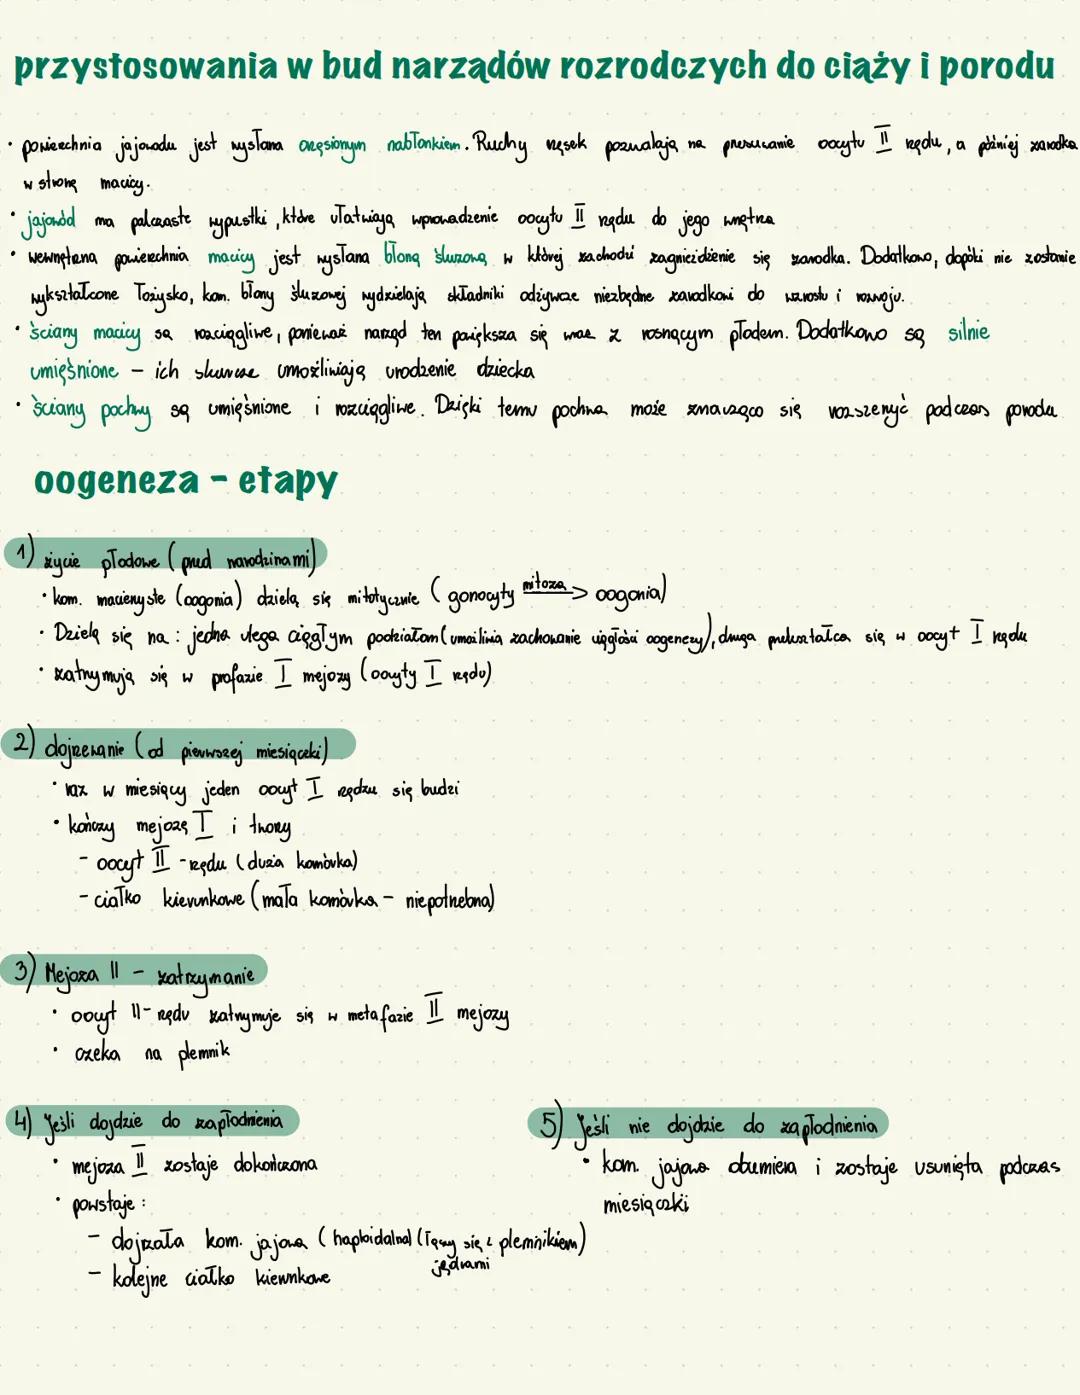 przystosowania w bud narządów rozrodczych do ciąży i porodu
• powierzchnia jajowodu jest wysłana orzęsionym nabłonkiem. Ruchy rzęsek pozwalają na przesuwanie oocytu II rzędu, a później zarodka
w stronę macicy.
• jajowód ma palczaste wypustki, które ułatwiają wprowadzenie oocytu II rzędu do jego wnętrza
• wewnętrzna powierzchnia macicy jest wysłana błoną śluzową w której zachodzi zagnieżdżenie się zarodka. Dodatkowo, dopóki nie zostanie
wykształcone łożysko, kom. błony śluzowej wydzielają składniki odżywcze niezbędne zarodkowi do wzrostu i rozwoju.
• ściany macicy są rozciągliwe, ponieważ narząd ten powiększa się wraz z rosnącym płodem. Dodatkowo są silnie
umięśnione – ich skurcze umożliwiają urodzenie dziecka
• ściany pochwy są umięśnione i rozciągliwe. Dzięki temu pochwa może znacząco się rozszerzyć podczas porodu
oogeneza - etapy
1) życie płodowe (przed narodzinami)
• kom. macierzyste (oogonia) dzielą się mitotycznie (gonocyty mitoza -> oogonia)
• Dzielą się na: jedna ulega ciągłym podziałom (umożliwia zachowanie ciągłości oogenezy), druga przekształca się w oocyt I rzędu
• zatrzymują się w profazie I mejozy (oocyty I rzędu)
2) dojrzewanie (od pierwszej miesiączki)
• raz w miesiącu jeden oocyt I rzędu się budzi
• kończy mejozę I i tworzy
- oocyt II - rzędu (duża komórka)
- ciałko kierunkowe (mała komórka - niepotrzebna)
3) Mejoza II - zatrzymanie
• oocyt II- rzędu zatrzymuje się w metafazie II mejozy
• czeka na plemnik
4) Jeśli dojdzie do zapłodnienia
• mejoza II zostaje dokończona
• powstaje:
- dojrzała kom. jajowa (haploidalna) (łączy się z plemnikiem)
jądrami
- kolejne ciałko kierunkowe
5) Jeśli nie dojdzie do zapłodnienia
• kom. jajowa obumiera i zostaje usunięta podczas
miesiączki